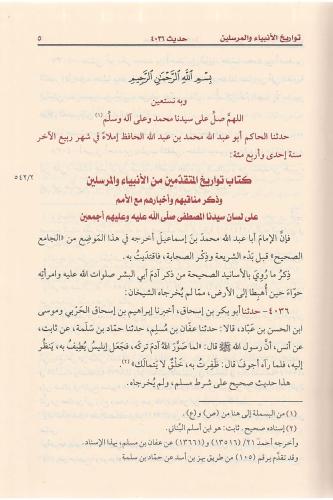 تواريخ الأنبياء والمرسلين حديث ٤٠٣٦ ٥
بِسْمِ اللَّهِ الرَّحْمَنِ الرَّحِيمِ
وبه نستعين
اللهمَّ صلِّ على سيدنا محمد وعلى آله وسلَّم(١)
حدثنا الحاكم أبو عبد الله محمد بن عبد الله الحافظ إملاءً في شهر ربيع الآخر
سنة إحدى وأربع مئة:
٥٤٢/٢
كتاب تواريخ المتقدّمين من الأنبياء والمرسلين
وذكر مناقبهم وأخبارهم مع الأمم
على لسان سيدنا المصطفى صلَّى الله عليه وعليهم أجمعين
فإنَّ الإمام أبا عبد الله محمدَ بنَ إسماعيل أخرجه في هذا المَوضِع من «الجامع
الصحيح» قبلَ بَدْء الشريعة وذِكْر الصحابة، فاقتدَيتُ به.
ذِكرُ ما رُوِيَ بالأسانيد الصحيحة من ذكر آدمَ أبي البشر صلوات الله عليه وامرأتِه
حوّاءَ حين أُهبِطا إلى الأرض، ممّا لم يُخرجاه الشيخان:
٤٠٣٦- حدثنا أبو بكر بن إسحاق، أخبرنا إبراهيم بن إسحاق الحَرْبي وموسى
ابن الحسن بن عبّاد، قالا: حدثنا عفّان بن مُسلِم، حدثنا حمّاد بن سَلَمة، عن ثابت،
عن أنس، أنَّ رسول الله ﷺ قال: «لما صَوَّرَ اللهُ آدمَ تركَه، فجَعَل إبليسُ يُطِيفُ به، ينظُر
إليه، فلما رآه أجوفَ قال: ظَفِرتُ به، خَلْقٌ لا يَتمالَك»(٢).
هذا حديث صحيح على شرط مسلم، ولم يُخرجاه.
(١) من البسملة إلى هنا من (ص) و(ع).
(٢) إسناده صحيح. ثابت: هو ابن أسلم البُناني.
وأخرجه أحمد ٢١/ (١٣٥١٦) و(١٣٦٦١) عن عفان بن مسلم، بهذا الإسناد.
وقد تقدَّم برقم (١٠٥) من طريق بهز بن أسد عن حمّاد بن سلمة.